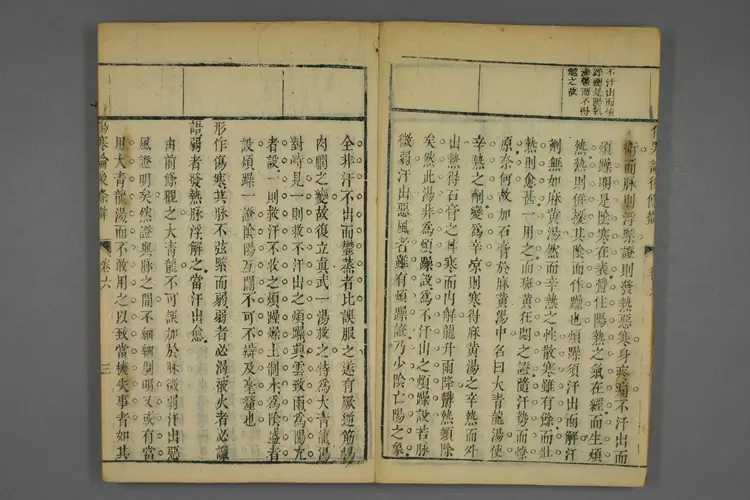 不汗出而煩
躁則是陽氣
鬱而不得
越之故
傷寒論後條辨
衛而脉則浮緊證則發熱惡寒身疼痛不汗出而
煩躁明是陰寒在表鬱住陽熱之氣在經而生煩
熱熱則併擾其陰而作躁也煩躁須汗出而解汗
劑無如麻黃湯然而辛熱之性散寒雖有餘而壯
熱則愈甚一用之而斑黃狂悶之證隨汗勢而燎
原奈何故加石膏於麻黃湯中名曰大青龍湯使
辛熱之劑變爲辛涼則寒得麻黃湯之辛熱而外
出熱得石膏之甘寒而內解龍升雨降鬱熱頓除
矣然此湯非爲煩躁設爲不汗出之煩躁設若脉
微弱汗出惡風者雖有煩躁證乃少陰亡陽之象
全非汗不出而鬱蒸者比誤服之遂有厥逆筋惕
肉瞤之變故復立真武一湯救之特爲大青龍湯
對峙見一則救不汗出之煩躁興雲致雨爲陽亢
者設一則救汗不收之煩躁燥土制水爲陰盛者
設煩躁一證陰陽互關不可不辨及毫釐也
形作傷寒其脉不弦緊而弱弱者必渴被火者必譫
語弱者發熱脉浮解之當汗出愈
由前條觀之大青龍不可誤加於脉微弱汗出惡
風證明矣然證與脉之間不細細闘明又或有當
用大青龍湯而不敢用之以致當機失事者如其
傷寒論後條辨
卷六
三